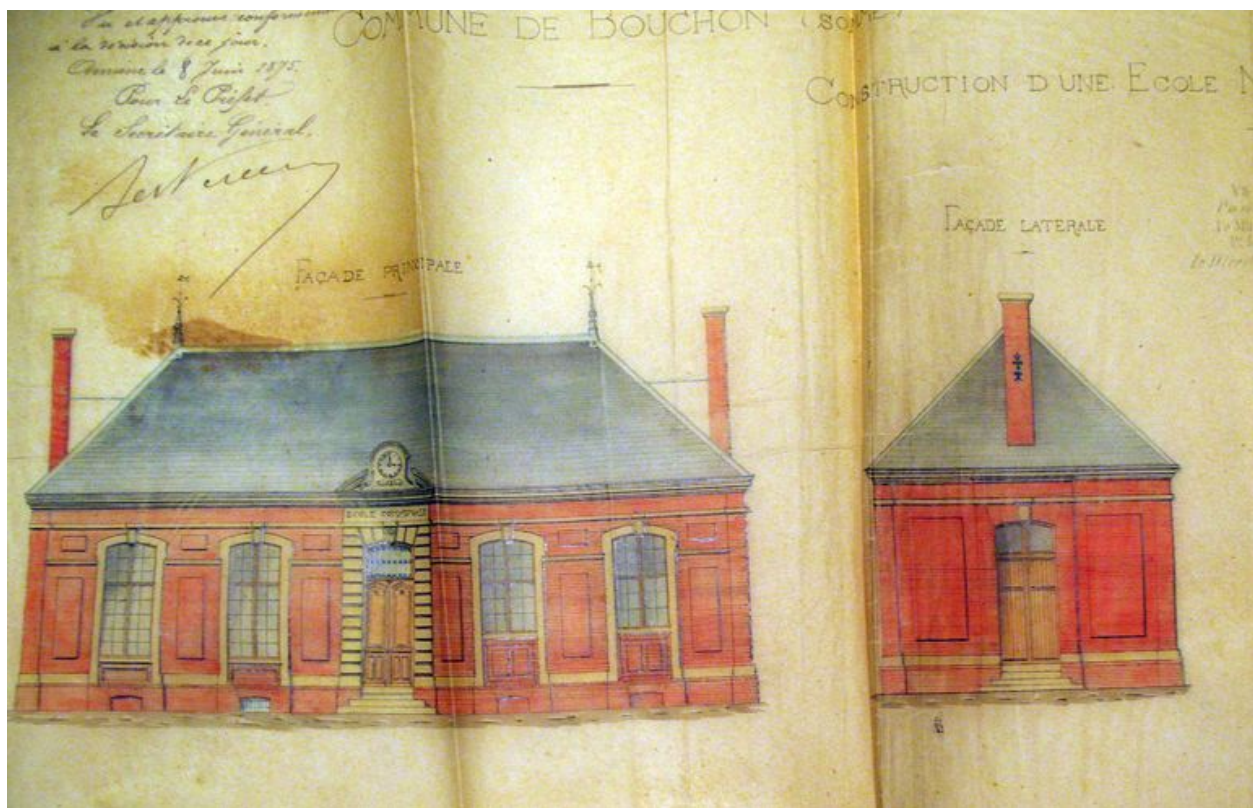 Vu et approuvé conformément
à la décision de ce jour.
Amiens le 8 Juin 1875.
Pour le Préfet
Le Secrétaire Général,
COMMUNE DE BOUCHON (SOMME)
CONSTRUCTION D'UNE ECOLE
FAÇADE PRINCIPALE
FAÇADE LATERALE
ECOLE COMMUNALE